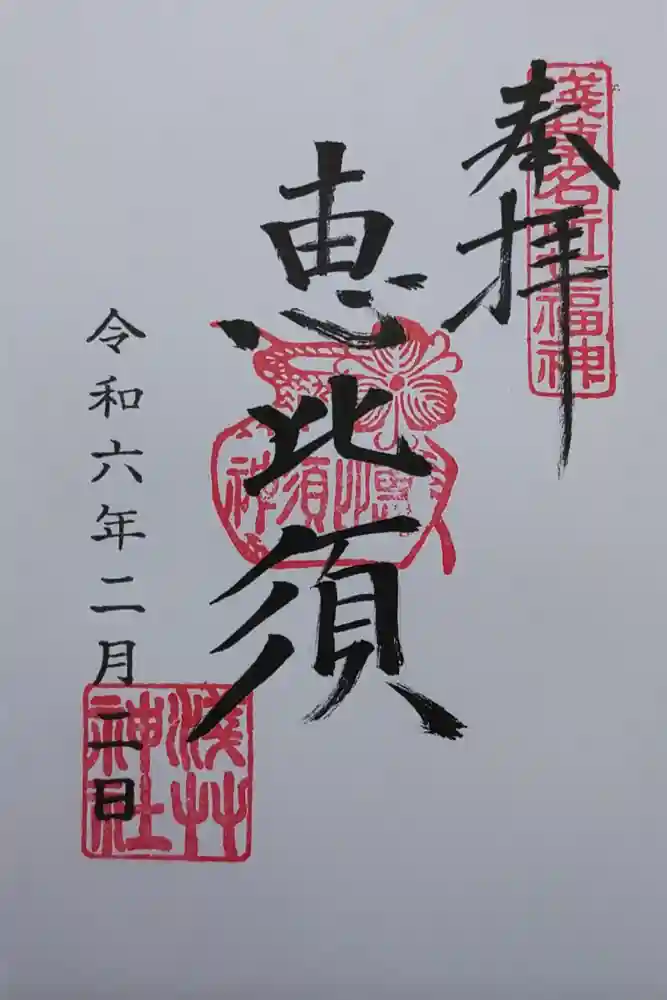 奉拝
淺草名所七福神
恵比須
恵比須神
令和六年二月二日
淺草神社